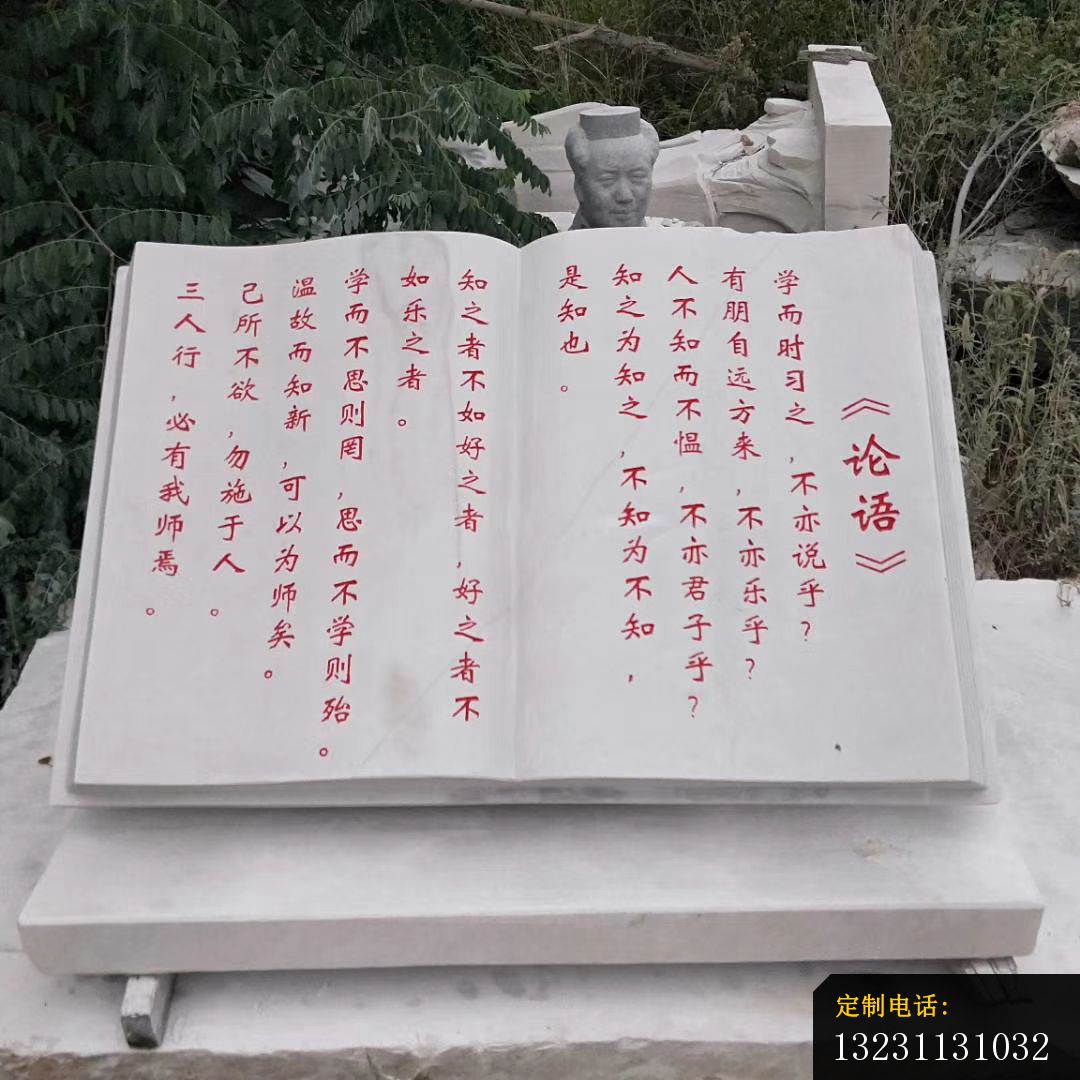 《论语》
学而时习之，不亦说乎？
有朋自远方来，不亦乐乎？
人不知而不愠，不亦君子乎？
知之为知之，不知为不知，
是知也。
知之者不如好之者，好之者不
如乐之者。
学而不思则罔，思而不学则殆。
温故而知新，可以为师矣。
己所不欲，勿施于人。
三人行，必有我师焉。
定制电话：
13231131032